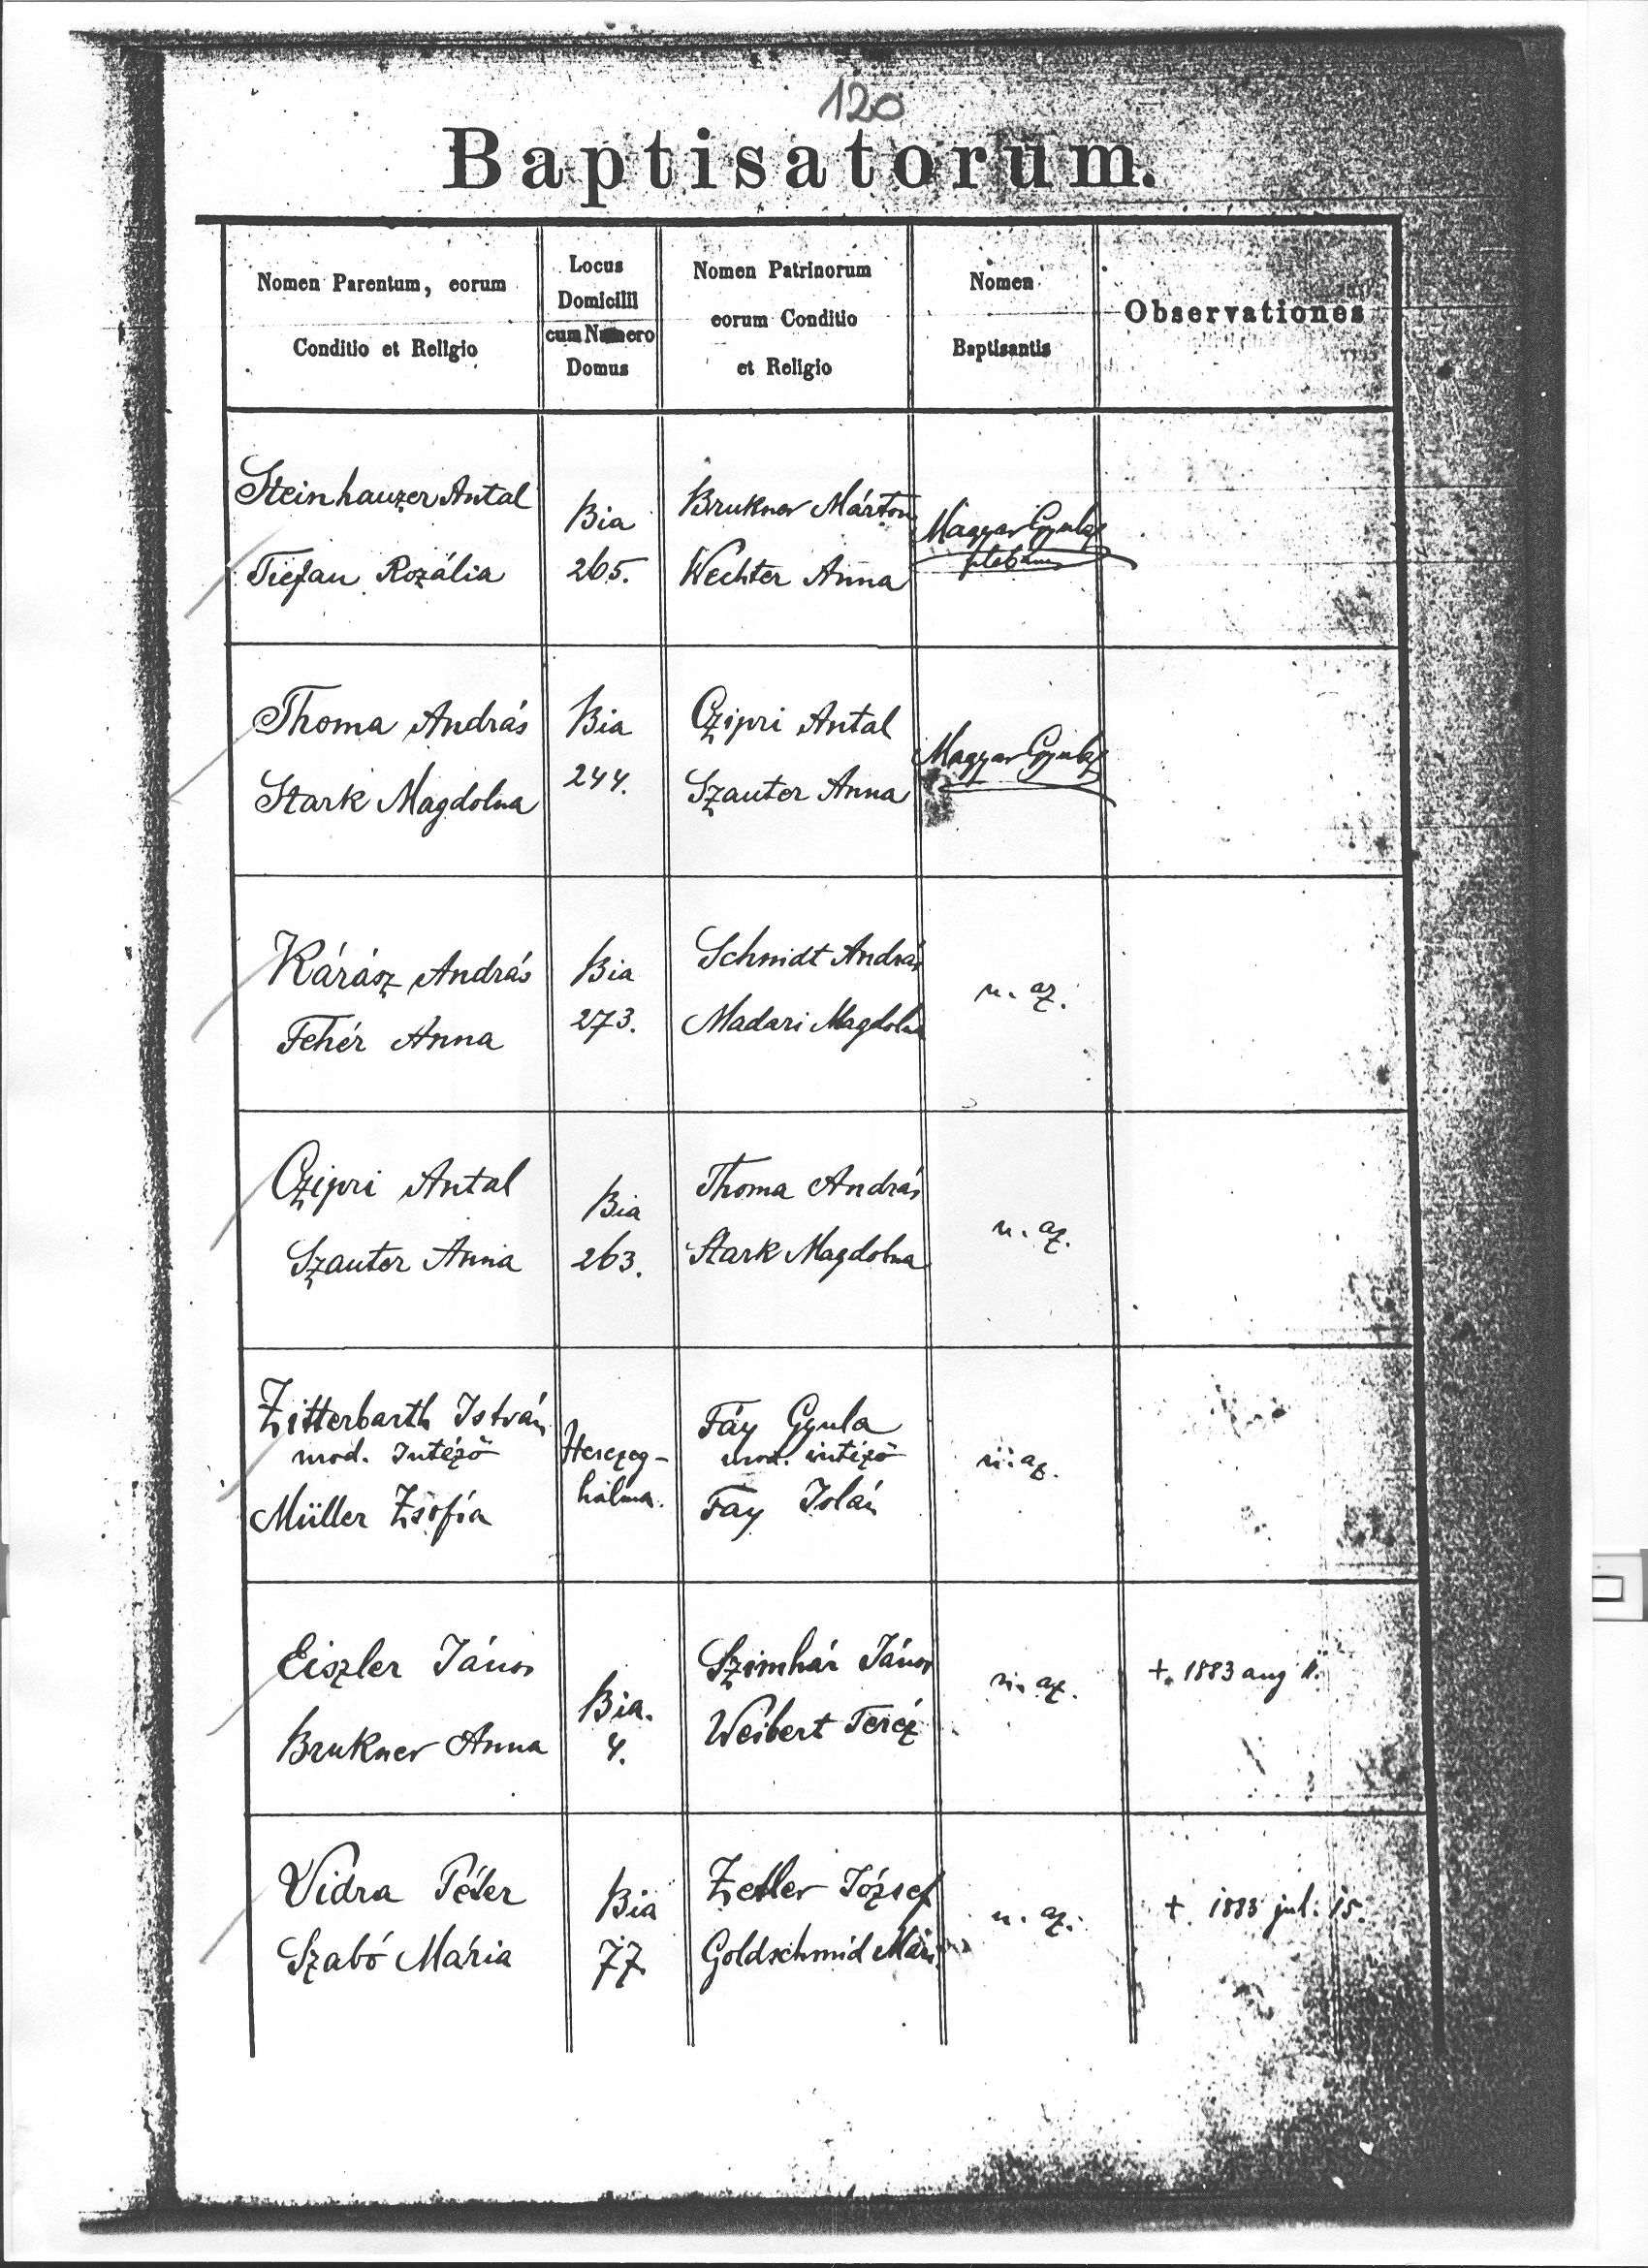 120
Baptisatorum.
Nomen Parentum, eorum
Conditio et Religio
Locus
Domicilii
cum Numero
Domus
Nomen Patrinorum
eorum Conditio
et Religio
Nomen
Baptisantis
Observationes
Steinhauzer Antal
Tiefau Rozália
Bia
265.
Brukner Márton
Wechter Anna
Magyar Gyula
plebános
Thoma András
Stark Magdolna
Bia
244.
Czipri Antal
Szauter Anna
Magyar Gyula
Kárász András
Fehér Anna
Bia
273.
Schmidt András
Madari Magdolna
u. az.
Czipri Antal
Szauter Anna
Bia
263.
Thoma András
Stark Magdolna
u. az.
Zitterbarth István
urod. Intéző
Müller Zsófia
Herczeg-
halma.
Fáy Gyula
urod. intéző
Fay
u. az.
Eiszler János
Brukner Anna
Bia.
4.
Szimhár János
Weibert Teréz
u. az.
+. 1883 aug 11.
Vidra Péter
Szabó Mária
Bia
77.
Zetler József
Goldschmid Mári
u. az.
+. 1883 jul: 15.